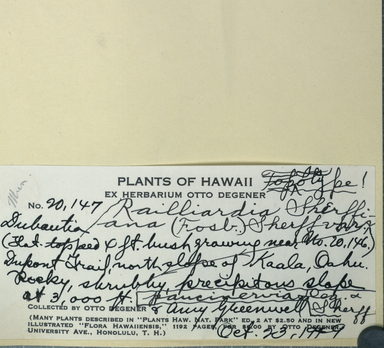 PLANTS OF HAWAII
Topotype!
EX HERBARIUM OTTO DEGENER
No. 20,147 Railliardia Sherffi-
Dubautia ana (Fosb.) Sherff
(Flat-topped 4 ft. bush growing near No. 20,146)
Dupont Trail, north slope of Kaala, Oahu.
Rocky, shrubby, precipitous slope
at 3,000 ft.
COLLECTED BY OTTO DEGENER & Amy Greenwell & Sherff
(MANY PLANTS DESCRIBED IN "PLANTS HAW. NAT. PARK" ED. 2 AT $2.50 AND IN NEW
ILLUSTRATED "FLORA HAWAIIENSIS," 1192 PAGES, BY OTTO DEGENER
UNIVERSITY AVE., HONOLULU, T. H.) Oct. 23,